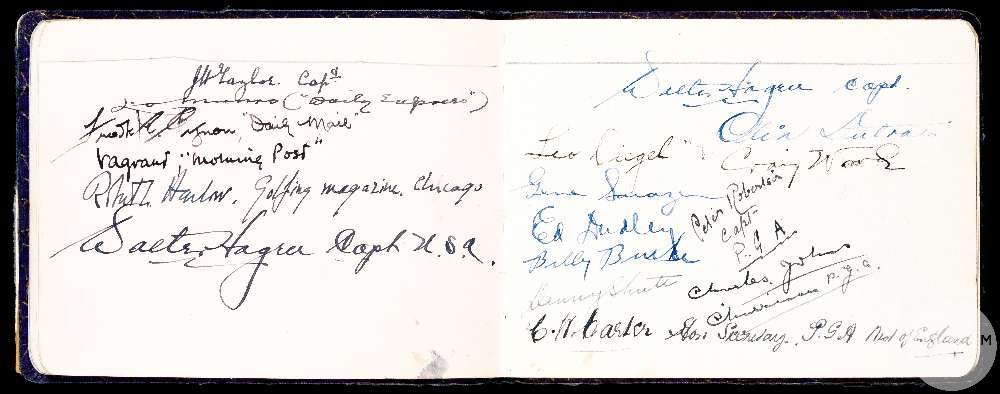 JH Taylor. Capt
("Daily Express")
"Daily Mail"
Vagrant; "Morning Post"
Robt. E. Harlow, Golfing magazine. Chicago
Walter Hagen Capt U.S.A.
Walter Hagen Capt.
Olin Dutra
Leo Diegel
Craig Wood
Gene Sarazen
Ed Dudley
Billy Burke
Denny Shute
Peter Robertson
Capt
P.G.A
Charles Johns
Chairman P.G.A.
C.H. Carter Hon Secretary. P.G.A West of England
M